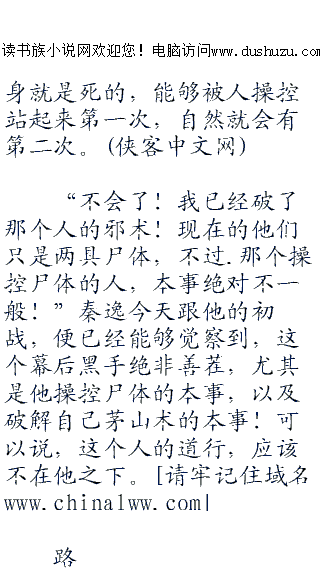 读书族小说网欢迎您！电脑访问www.dushuzu.com
身就是死的，能够被人操控
站起来第一次，自然就会有
第二次。(侠客中文网)
“不会了！我已经破了
那个人的邪术！现在的他们
只是两具尸体，不过.那个操
控尸体的人，本事绝对不一
般！”秦逸今天跟他的初
战，便已经能够觉察到，这
个幕后黑手绝非善茬，尤其
是他操控尸体的本事，以及
破解自己茅山术的本事！可
以说，这个人的道行，应该
不在他之下。[请牢记住域名
www.china1ww.com|
路